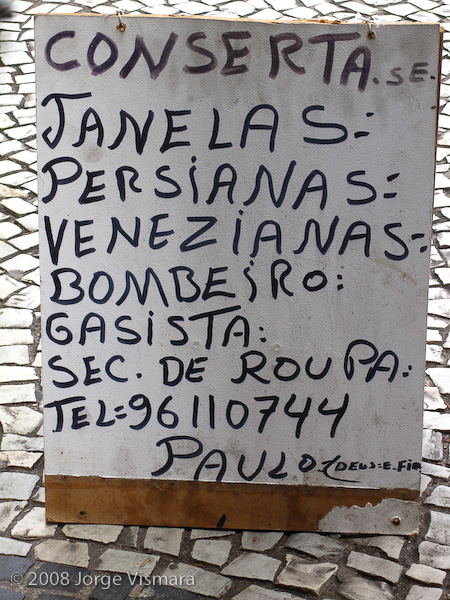 CONSERTA.SE.
JANELAS:
PERSIANAS:
VENEZIANAS:
BOMBEIRO:
GASISTA:
SEC. DE ROUPA:
TEL=96110744
PAULO. DEUS.E.Fie
© 2008 Jorge Vismara